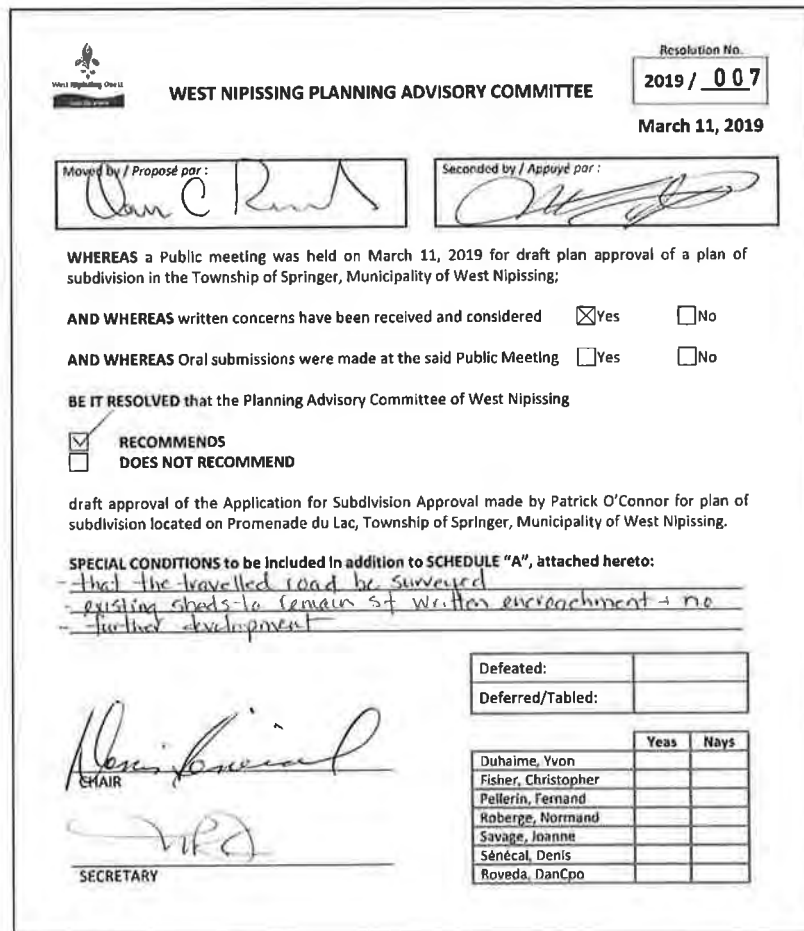 West Nipissing Ouest
WEST NIPISSING PLANNING ADVISORY COMMITTEE
Resolution No.
2019 / 007
March 11, 2019
Moved by / Proposé par :
Seconded by / Appuyé par :
WHEREAS a Public meeting was held on March 11, 2019 for draft plan approval of a plan of
subdivision in the Township of Springer, Municipality of West Nipissing;
AND WHEREAS written concerns have been received and considered Yes No
AND WHEREAS Oral submissions were made at the said Public Meeting Yes No
BE IT RESOLVED that the Planning Advisory Committee of West Nipissing
RECOMMENDS
DOES NOT RECOMMEND
draft approval of the Application for Subdivision Approval made by Patrick O'Connor for plan of
subdivision located on Promenade du Lac, Township of Springer, Municipality of West Nipissing.
SPECIAL CONDITIONS to be included in addition to SCHEDULE "A", attached hereto:
- that the travelled road be surveyed
- existing sheds to remain st written encroachment + no
- further development
Defeated:
Deferred/Tabled:
Yeas Nays
Duhaime, Yvon
Fisher, Christopher
Pellerin, Fernand
Roberge, Normand
Savage, Joanne
Sénécal, Denis
Roveda, DanCpo
CHAIR
SECRETARY